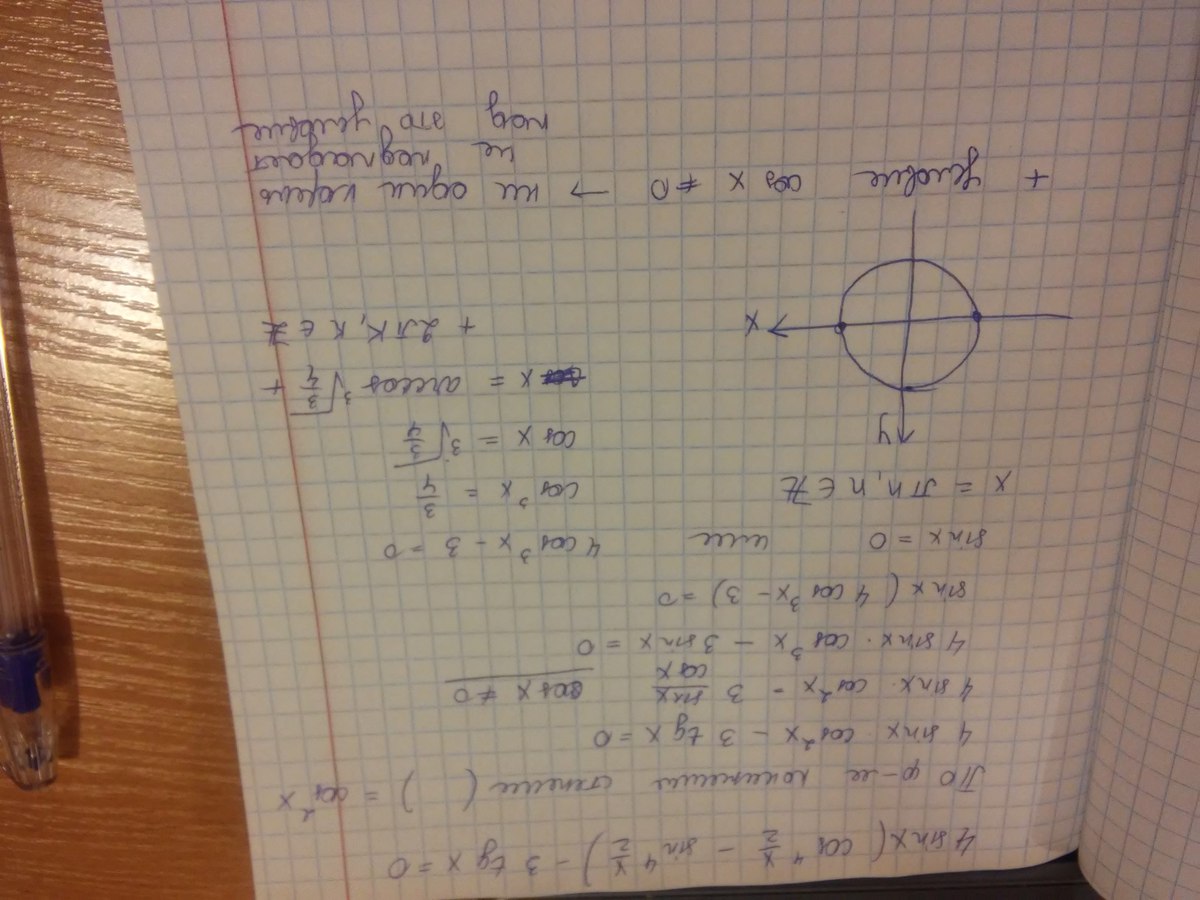 4 sinx ( cos⁴ x/2 − sin⁴ x/2 ) − 3 tg x = 0
По ф-ле понижения степени ( ) = cos²x
4 sinx · cos²x − 3 tg x = 0
4 sinx · cos²x − 3 sinx/cosx cosx ≠ 0
4 sinx · cos³x − 3 sinx = 0
sinx ( 4 cos³x − 3 ) = 0
sinx = 0 или 4 cos³x − 3 = 0
x = πn, n ∈ Z cos³x = 3/4
y cos x = ³√3/4
x = arccos ³√3/4 +
x + 2πk, k ∈ Z
+ условие cos x ≠ 0 → ни один корень
не подпадает
под это условие